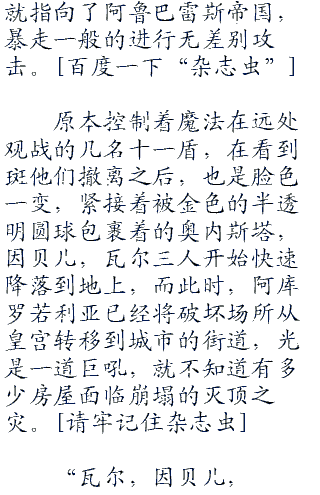 就指向了阿鲁巴雷斯帝国，
暴走一般的进行无差别攻
击。[百度一下“杂志虫”]
原本控制着魔法在远处
观战的几名十一盾，在看到
斑他们撤离之后，也是脸色
一变，紧接着被金色的半透
明圆球包裹着的奥内斯塔，
因贝儿，瓦尔三人开始快速
降落到地上，而此时，阿库
罗若利亚已经将破坏场所从
皇宫转移到城市的街道，光
是一道巨吼，就不知道有多
少房屋面临崩塌的灭顶之
灾。[请牢记住杂志虫]
“瓦尔，因贝儿，